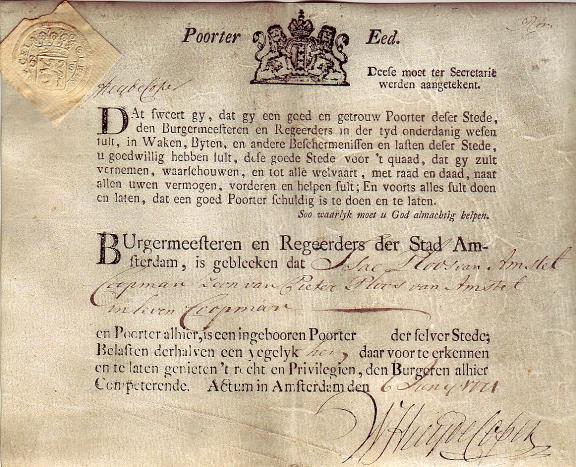 Poorter Eed.
Deese moet ter Secretarie
werden aangetekent.
Huydecoper
DAt sweert gy, dat gy een goed en getrouw Poorter deser Stede,
den Burgermeesteren en Regeerders in der tyd onderdanig wesen
sult, in Waken, Byten, en andere Beschermenissen en lasten deser Stede,
u goedwillig hebben sult, dese goede Stede voor 't quaad, dat gy zult
vernemen, waarschouwen, en tot alle welvaart, met raad en daad, naar
allen uwen vermogen, vorderen en helpen sult; En voorts alles sult doen
en laten, dat een goed Poorter schuldig is te doen en te laten.
Soo waarlyk moet u God almachtig helpen.
BUrgermeesteren en Regeerders der Stad Am-
sterdam, is gebleeken dat Isac Ploos van Amstel
Coopman Zoon van Pieter Ploos van Amstel
in leven Coopman
en Poorter alhier, is een ingebooren Poorter der selver Stede;
Belasten derhalven een yegelyk hem, daar voor te erkennen
en te laten genieten 't recht en Privilegien, den Burgeren alhier
Competerende. Actum in Amsterdam den 6
Huydecoper